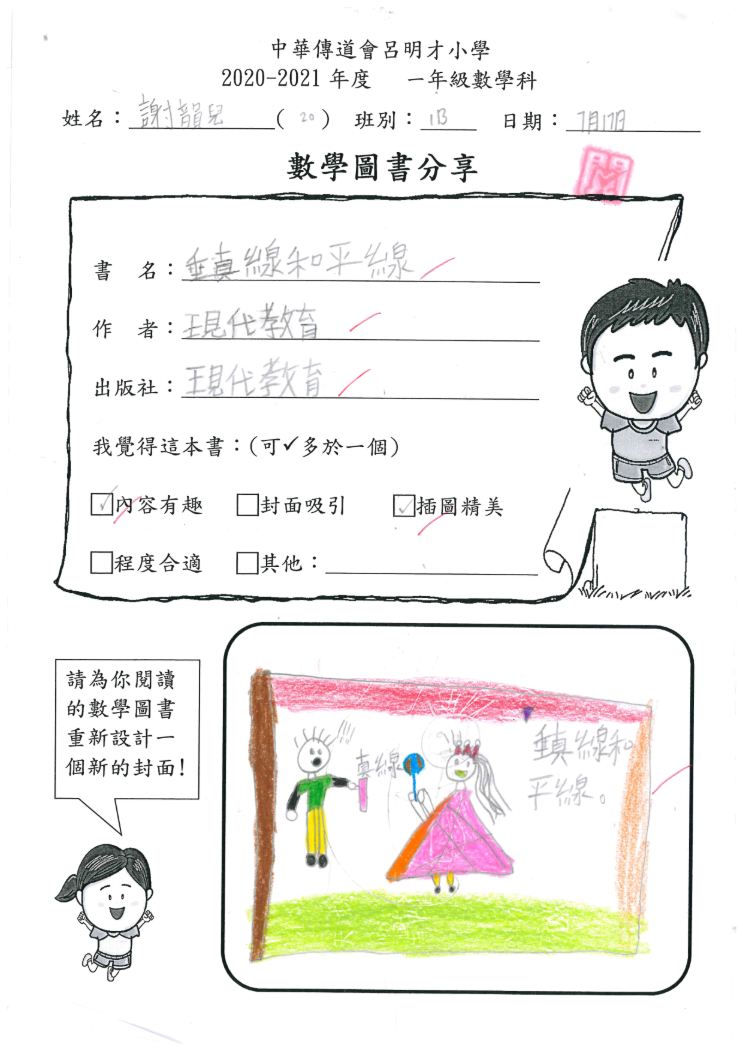 中華傳道會呂明才小學
2020-2021 年度 一年級數學科
姓名：謝韻兒 ( 20 ) 班別：1B 日期：7月17日
數學圖書分享
書 名：垂真線和平線
作 者：現代教育
出版社：現代教育
我覺得這本書：(可✓多於一個)
☑內容有趣 □封面吸引 ☑插圖精美
□程度合適 □其他：
請為你閱讀
的數學圖書
重新設計一
個新的封面！
真線
垂真線和
平線。